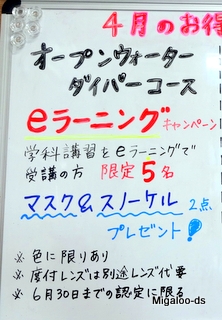 4月のお得
オープンウォーター
ダイバーコース
eラーニング キャンペーン
学科講習をeラーニングで
受講の方 限定5名
マスク&スノーケル 2点
プレゼント!
※ 色に限りあり
※ 度付レンズは別途レンズ代要
※ 6月30日までの認定に限る
Migaloo-ds